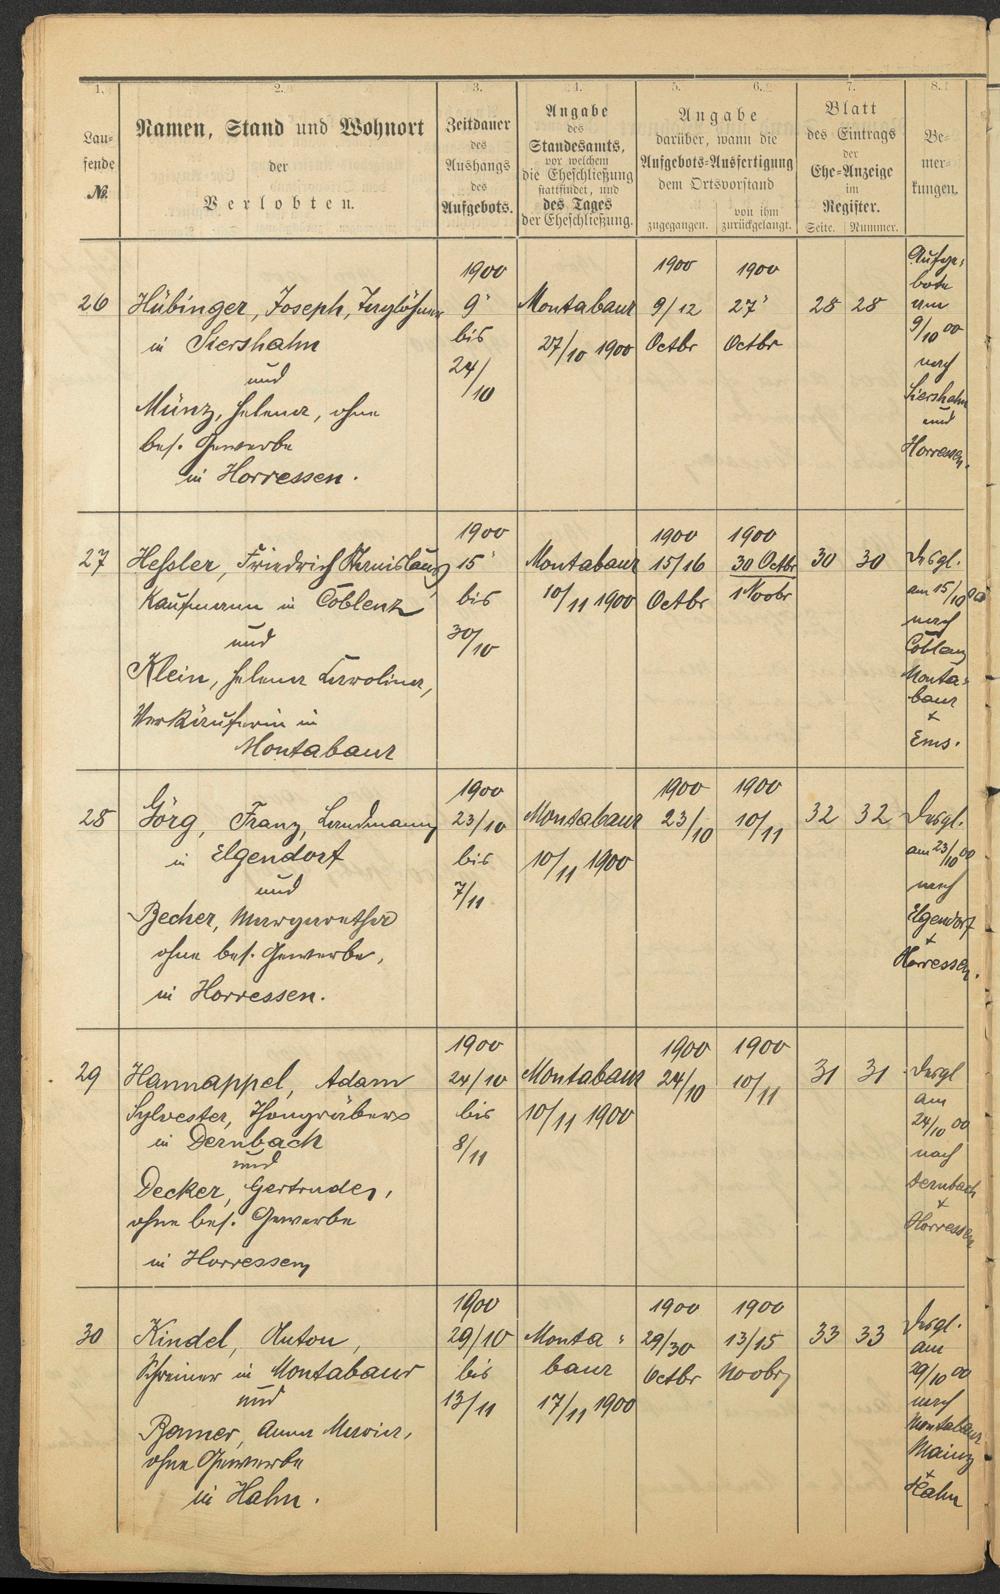 1. 2. 3. 4. 5. 6. 7. 8.
Lau-
fende
№.
Namen, Stand und Wohnort
der
Verlobten.
Zeitdauer
des
Aushangs
des
Aufgebots.
Angabe
des
Standesamts,
vor welchem
die Eheschließung
stattfindet, und
des Tages
der Eheschließung.
Angabe
darüber, wann die
Aufgebots-Ausfertigung
dem Ortsvorstand
zugegangen.
von ihm
zurückgelangt.
Blatt
des Eintrags
der
Ehe-Anzeige
im
Register.
Seite. Nummer.
Be-
mer-
kungen.
26
Hübinger, Joseph, Taglöhner
in Siershahn
und
Münz, Helena, ohne
bes. Gewerbe
in Horressen.
1900
9'
bis
24/
/10
Montabaur
27/10 1900
1900
9/12
Octbr
1900
27'
Octbr
28 28
Aufge-
bote
am
9/10 00
nach
Siershahn
und
Horressen.
27
Hessler, Friedrich Stanislaus,
Kaufmann in Coblenz
und
Klein, Helena Carolina,
Verkäuferin in
Montabaur
1900
15'
bis
30/10
Montabaur
10/11 1900
1900
15/16
Octbr
1900
30 Octbr
1 Novbr
30 30
Desgl.
am 15/10 00
nach
Coblenz
Monta-
baur
+
Ems.
28
Görg, Franz, Landmann
in Elgendorf
und
Becher, Margaretha
ohne bes. Gewerbe,
in Horressen.
1900
23/10
bis
7/11
Montabaur
10/11 1900
1900
23/10
1900
10/11
32 32
Desgl.
am 23/10 00
nach
Elgendorf
+
Horressen.
29
Hannappel, Adam
Sylvester, Thongräber
in Dernbach
und
Decker, Gertrude,
ohne bes. Gewerbe
in Horressen
1900
24/10
bis
8/11
Montabaur
10/11 1900
1900
24/10
1900
10/11
31 31
Desgl
am
24/10 00
nach
Dernbach
+
Horressen
30
Kindel, Anton,
Schreiner in Montabaur
und
Anna Maria,
ohne Gewerbe
in Hahn.
1900
29/10
bis
13/11
Monta-
baur
17/11 1900
1900
29/30
Octbr
1900
13/15
Novbr
33 33
Desgl.
am
29/10 00
nach
Montabaur
Mainz
+
Hahn